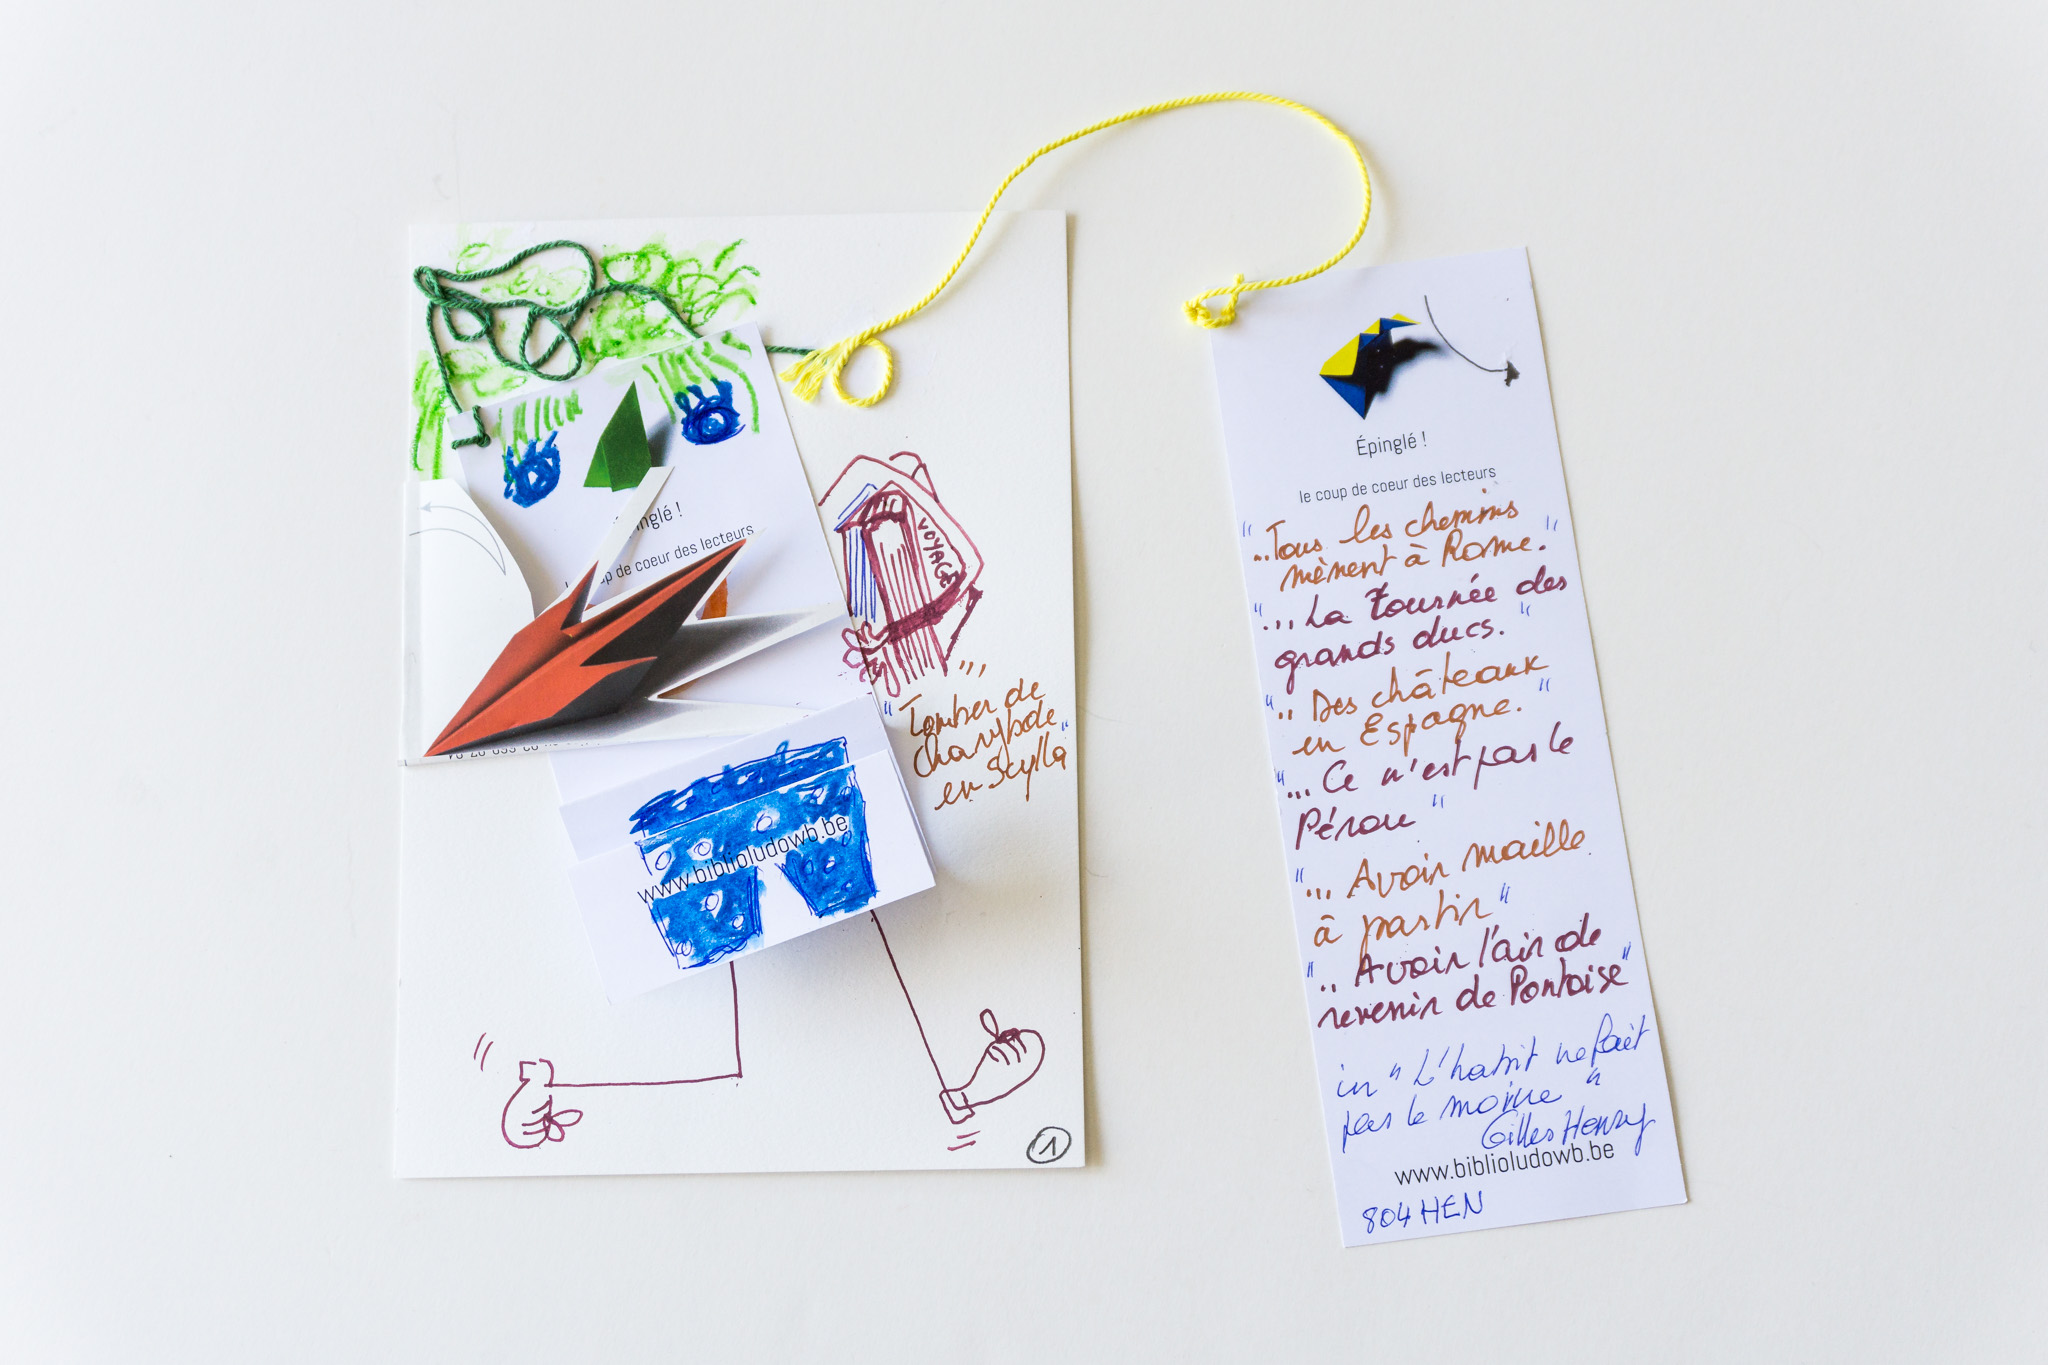 Épinglé !
le coup de coeur des lecteurs
VOYAGE
"Tomber de
charybde
en Scylla"
www.biblioludowb.be
1
Épinglé !
le coup de coeur des lecteurs
"...Tous les chemins
mènent à Rome."
"... La Tournée des
grands ducs."
".. Des châteaux
en Espagne."
"... Ce n'est pas le
Pérou"
"... Avoir maille
à partir"
".. Avoir l'air de
revenir de Pontoise"
in "L'habit ne fait
pas le moine"
Gilles Henry
www.biblioludowb.be
804 HEN